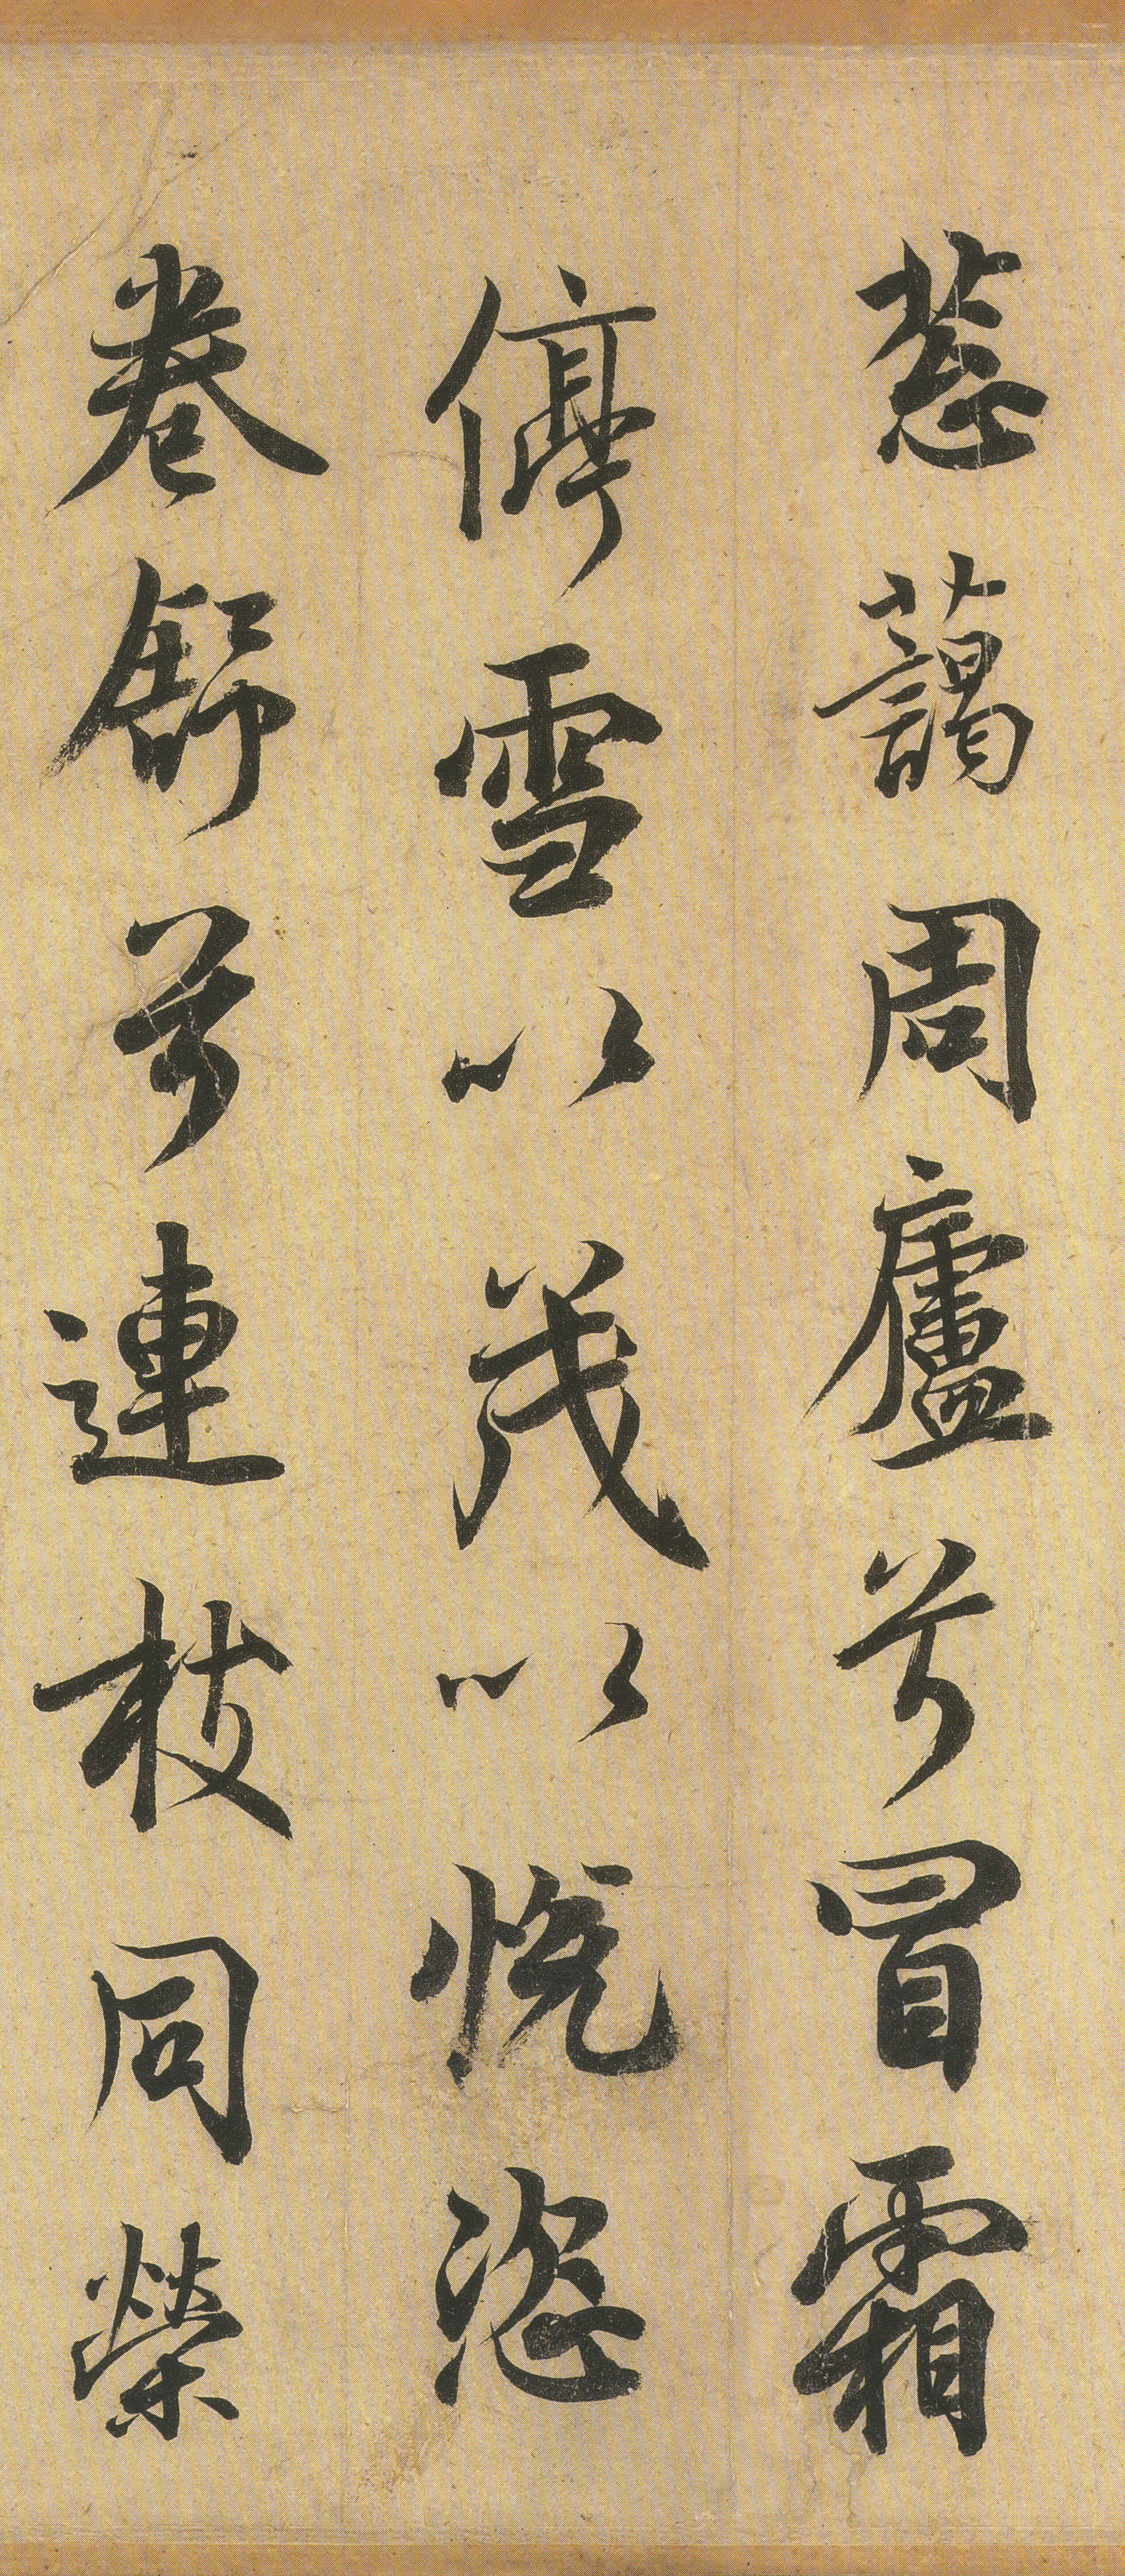 葱藹周廬兮冒霜
停雪以茂以悦恣
卷舒兮連枝同榮